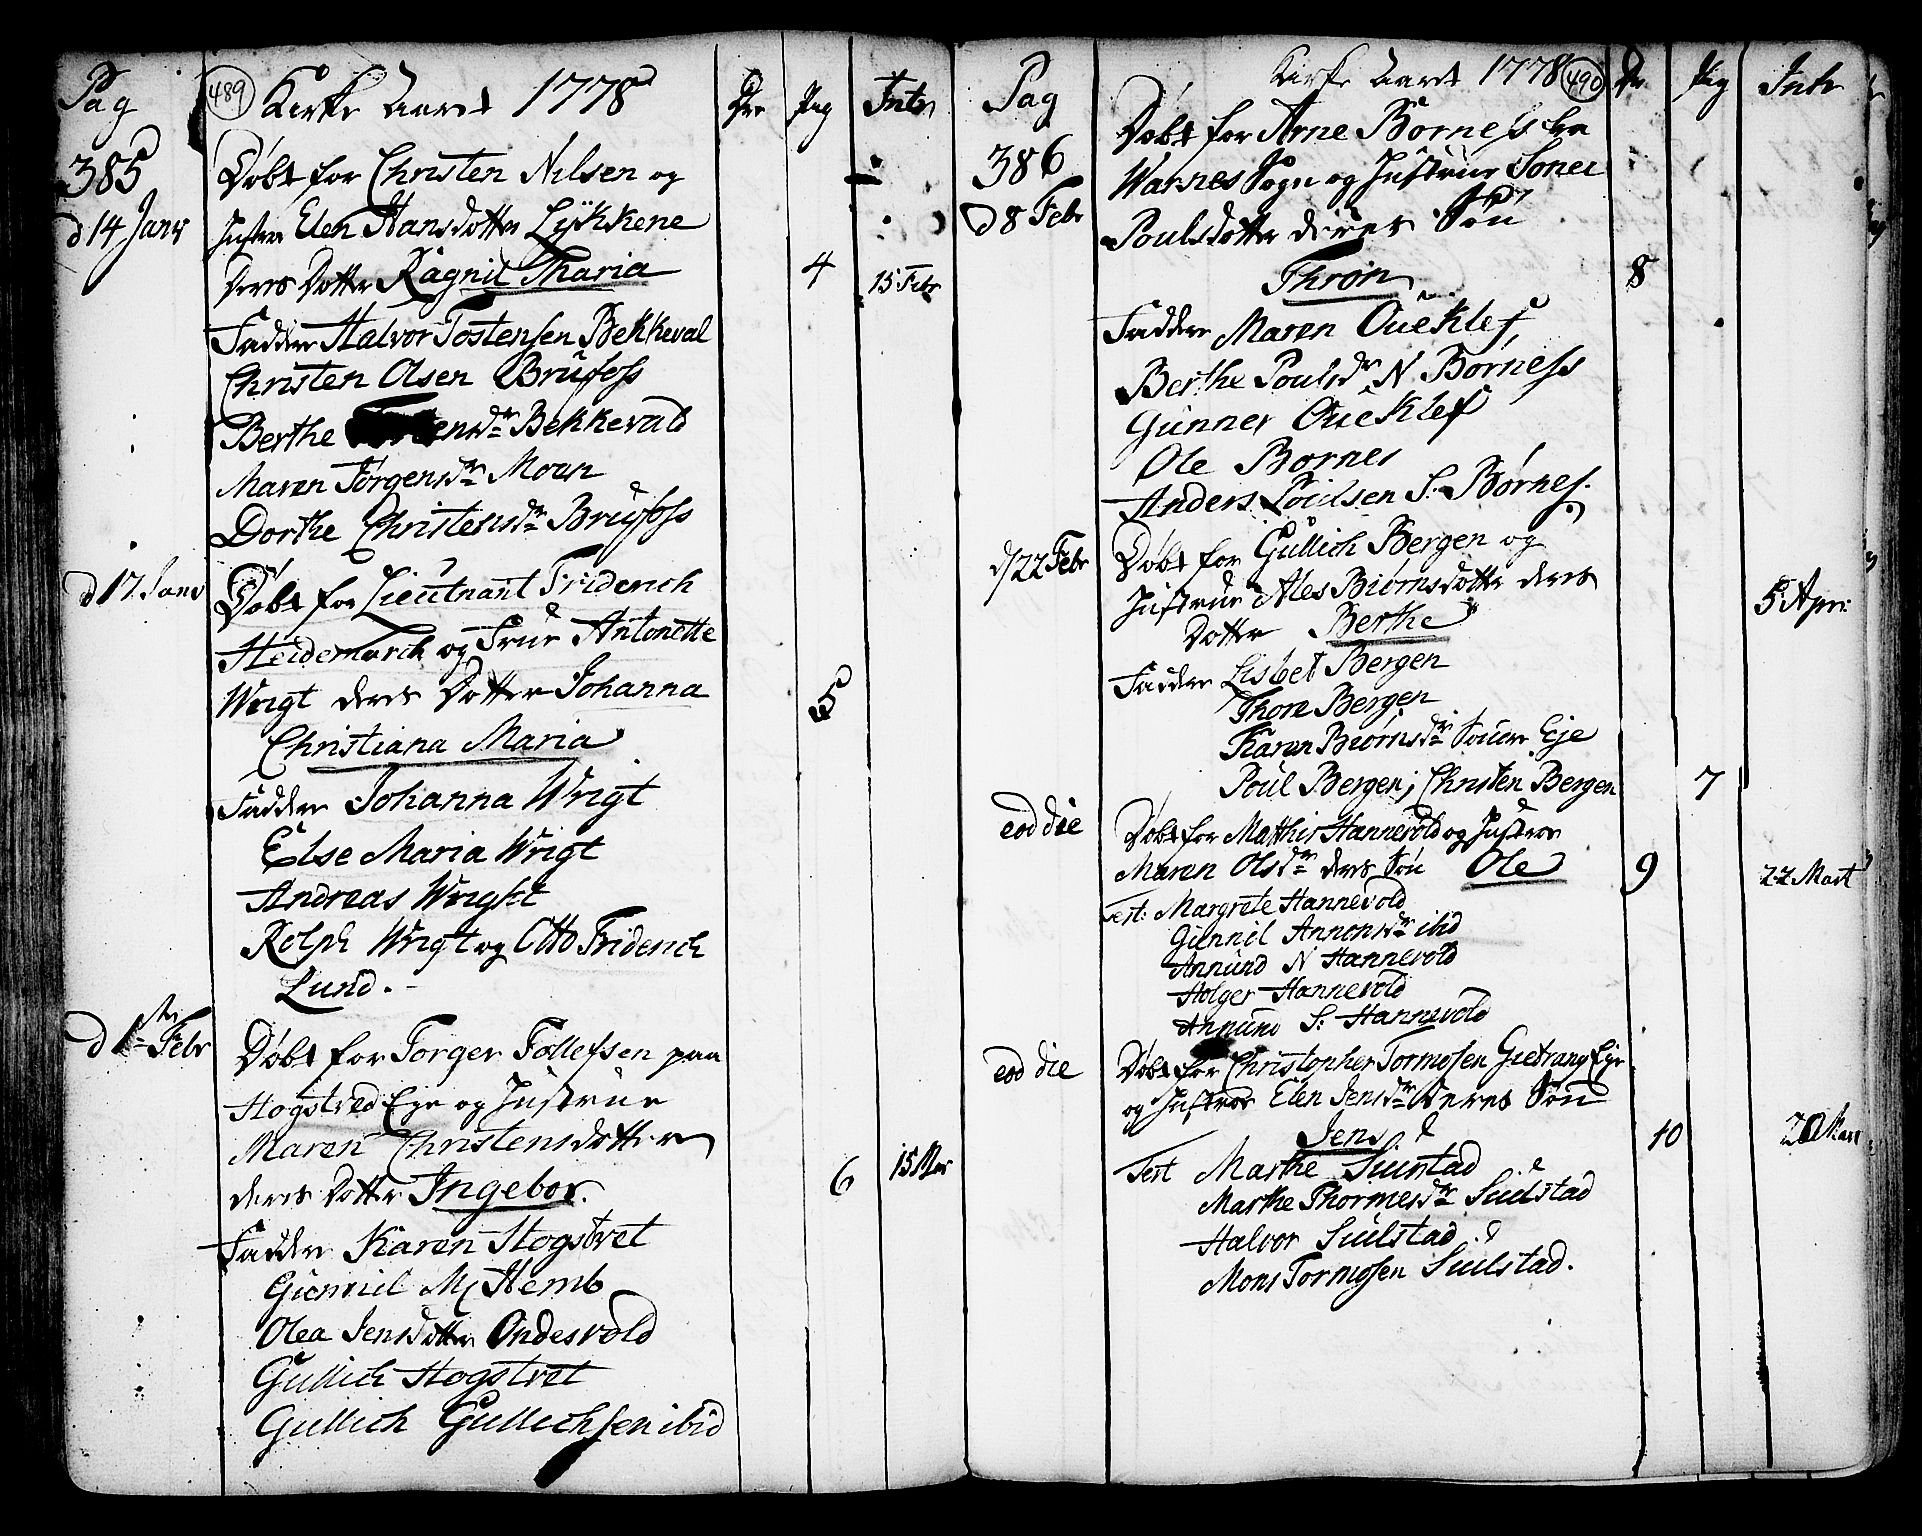 Pag
489
Kirke Aaret 1778
Dr
Pig
Intr
385
d 14 Janr
Døbt for Christen Nilsen og
Hustru Elen Hansdotter Lykkene
Deres Dotter Ragnil Tharia
4
15 Febr
Faddere Halvor Tostensen Bekkeval
Christen Olsen Brufoss
Berthe ensdr Bekkevald
Maren Jørgensdr Moen
Dorthe Christensdr Brufoss
d 17 Janr
Døbt for Lieutnant Friderich
Heidemarck og Frue Antonette
Wrigt deres Dotter Johanna
5
Christiana Maria
Faddere Johanna Wrigt
Else Maria Wrigt
Andreas Wright
Rolph Wrigt og Otto Friderich
Lund.
d 1ste Febr
Døbt for Torger Tollefsen paa
Hogstved Eye og Hustrue
Maren Christensdotter
deres Dotter Ingebor.
6
15 Mar
Faddere Karen Hogstvet
Gunnil M Hemb
Olea Jensdotter Ondesvold
Gullich Hogstvet
Gullich Gullichsen ibid
Pag
Kirke Aaret 1778
490
Dr
Pig
Intr
386
d 8 Febr
Døbt for Arne Borness fra
Warnes Sogn og Hustrue Sonei
Poulsdotter deres Søn
Thron
8
Faddere Maren Oueklef
Berthe Poulsdr N Borness
Gunner Oueklef
Ole Bornes
Anders Poulsen S. Børnes.
d 22 Febr
Døbt for Gullich Bergen og
Hustrue Ales Biørnsdotter deres
Dotter Berthe
5 Apr:
Faddere Lisbet Bergen
Thore Bergen
Karen Biørnsdr Eje
Poul Bergen; Christen Bergen
7
eod die
Døbt for Mathis Hannevold og Hustroe
Maren Olsdr deres Søn Ole
9
22 Mart
Test: Margrete Hannevold
Gunnil Annonsdr ibid
Annund N Hannevold
Holger Hannevold
Annund S: Hannevold
eod die
Døbt for Christopher Tormosen Gietrang Eye
og Hustroe Elen Jensdr deres Søn
Jens
10
20 Mart
Test Marthe Suulstad
Marthe Thormosdr Suulstad
Halvor Suulstad
Mons Tormosen Suulstad.